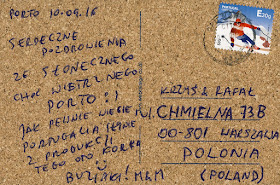 PORTO 10.09.16
SERDECZNE
POZDROWIENIA
ZE SŁONECZNEGO
CHOĆ WIETRZNEGO
PORTO!:)
JAK PEWNIE WIECIE
PORTUGALIA SŁYNIE
Z PRODUKCJI
TEGO OTO KORKA
BUZIAKI! M&M
KRZYŚ & RAFAŁ
UL. CHMIELNA 73B
00-801 WARSZAWA
POLONIA
(POLAND)
PORTUGAL
E20g